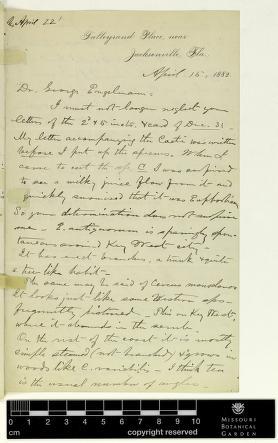 April 22
Talleyrand Place, near
Jacksonville, Fla.
April 15, 1882.
Dr. George Engelmann:
I must not longer neglect your
letters of the 2d & 5 inst. & card of Dec. 31
My letter accompanying the Cacti was written
before I put up the specimens. When I
came to cut the sp. I was surprised
to see a milky juice flow from it and
quickly surmised that it was Euphorbia
So your determination does not surprise
me - E. antiquorum is sparingly spon-
taneous around Key West city -
It has erect branches, a trunk & quite
a tree-like habit -
The same may be said of Cereus monoclonos
It looks just like some Western spe-
frequently pictured - This on Key West,
where it abounds in the scrub.
On the rest of the coast it is mostly
simple stemed (not branched) & grows in
woods like C. variabilis - I think ten
is the usual number of angles -
cm
copyright reserved
MISSOURI
BOTANICAL
GARDEN